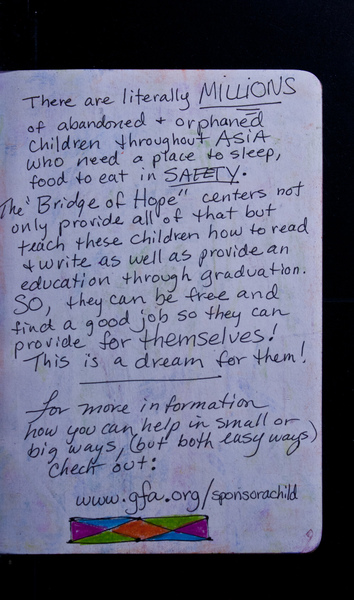 There are literally MILLIONS
of abandoned + orphaned
children throughout ASIA
who need a place to sleep,
food to eat in SAFETY.
The "Bridge of Hope" centers not
only provide all of that but
teach these children how to read
+ write as well as provide an
education through graduation.
SO, they can be free and
find a good job so they can
provide for themselves!
This is a dream for them!
For more information
how you can help in small or
big ways, (but both easy ways)
Check out:
www.gfa.org/sponsorachild